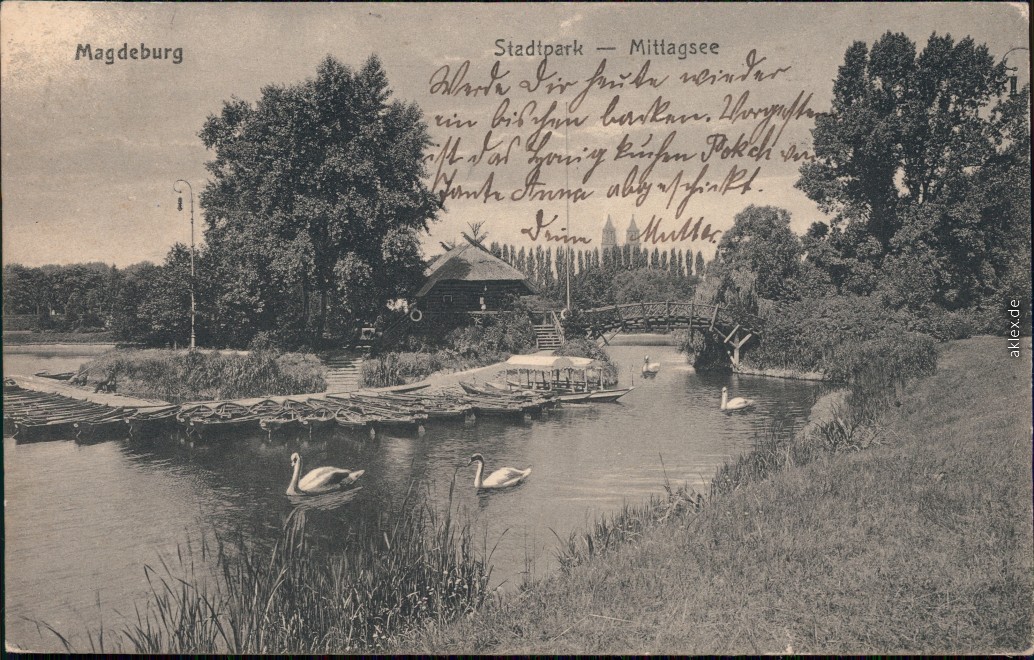 Magdeburg
Stadtpark — Mittagsee
Werde Dir heute wieder
ein bischen backen. Vorgestern
ist das Honigkuchen Packch von
Tante Anna abgeschickt.
Deine Mutter.
aklex.de